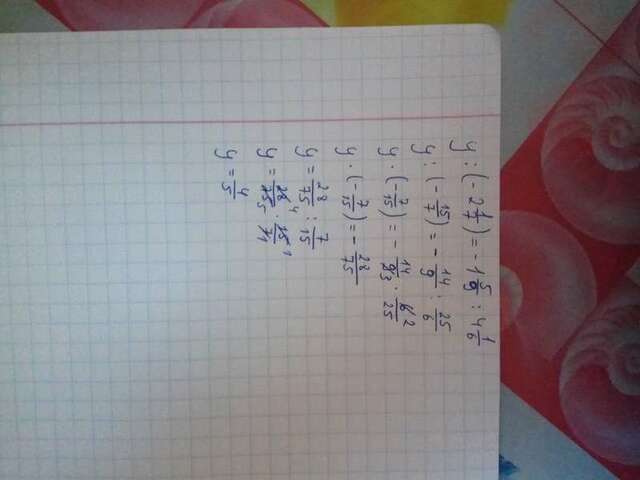 y : (- 2 1/7) = - 1 5/9 : 4 1/6
y : (- 15/7) = - 14/9 : 25/6
y · (- 7/15) = - 14/9 3 · 6 2/25
y · (- 7/15) = - 28/75
y = 28/75 : 7/15
y = 28 4/75 5 · 15 1/7 1
y = 4/5